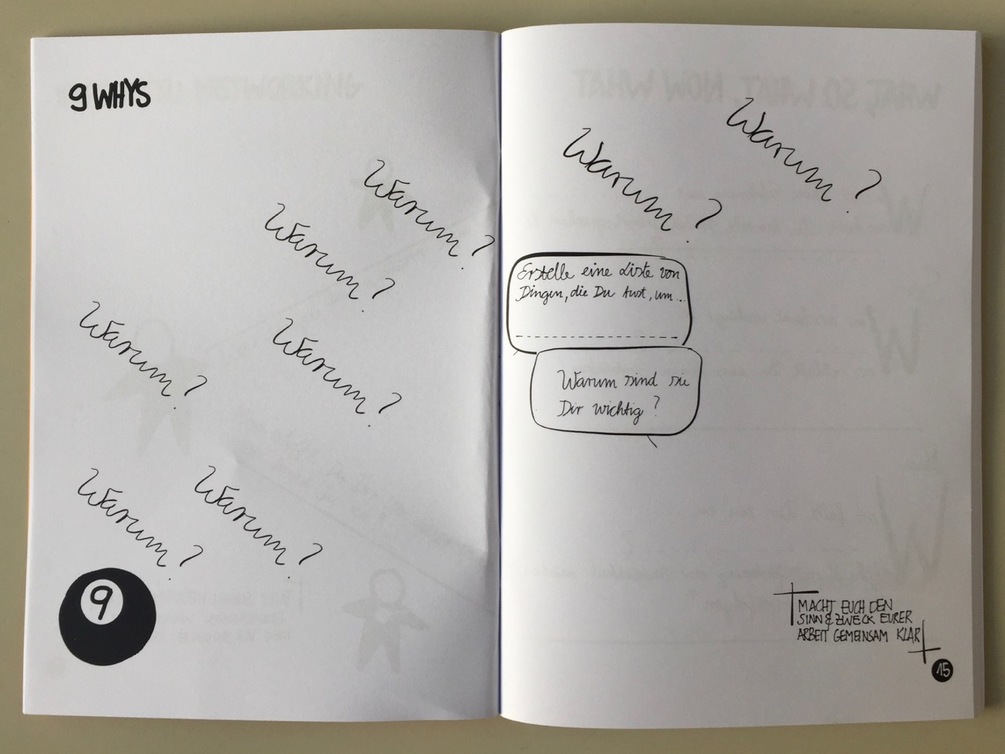 9 WHYS
Warum?
Warum?
Warum?
Warum?
Warum?
Warum?
9
Warum?
Warum?
Erstelle eine Liste von
Dingen, die Du tust, um...
Warum sind sie
Dir wichtig?
MACHT EUCH DEN
SINN & ZWECK EURER
ARBEIT GEMEINSAM KLAR
15